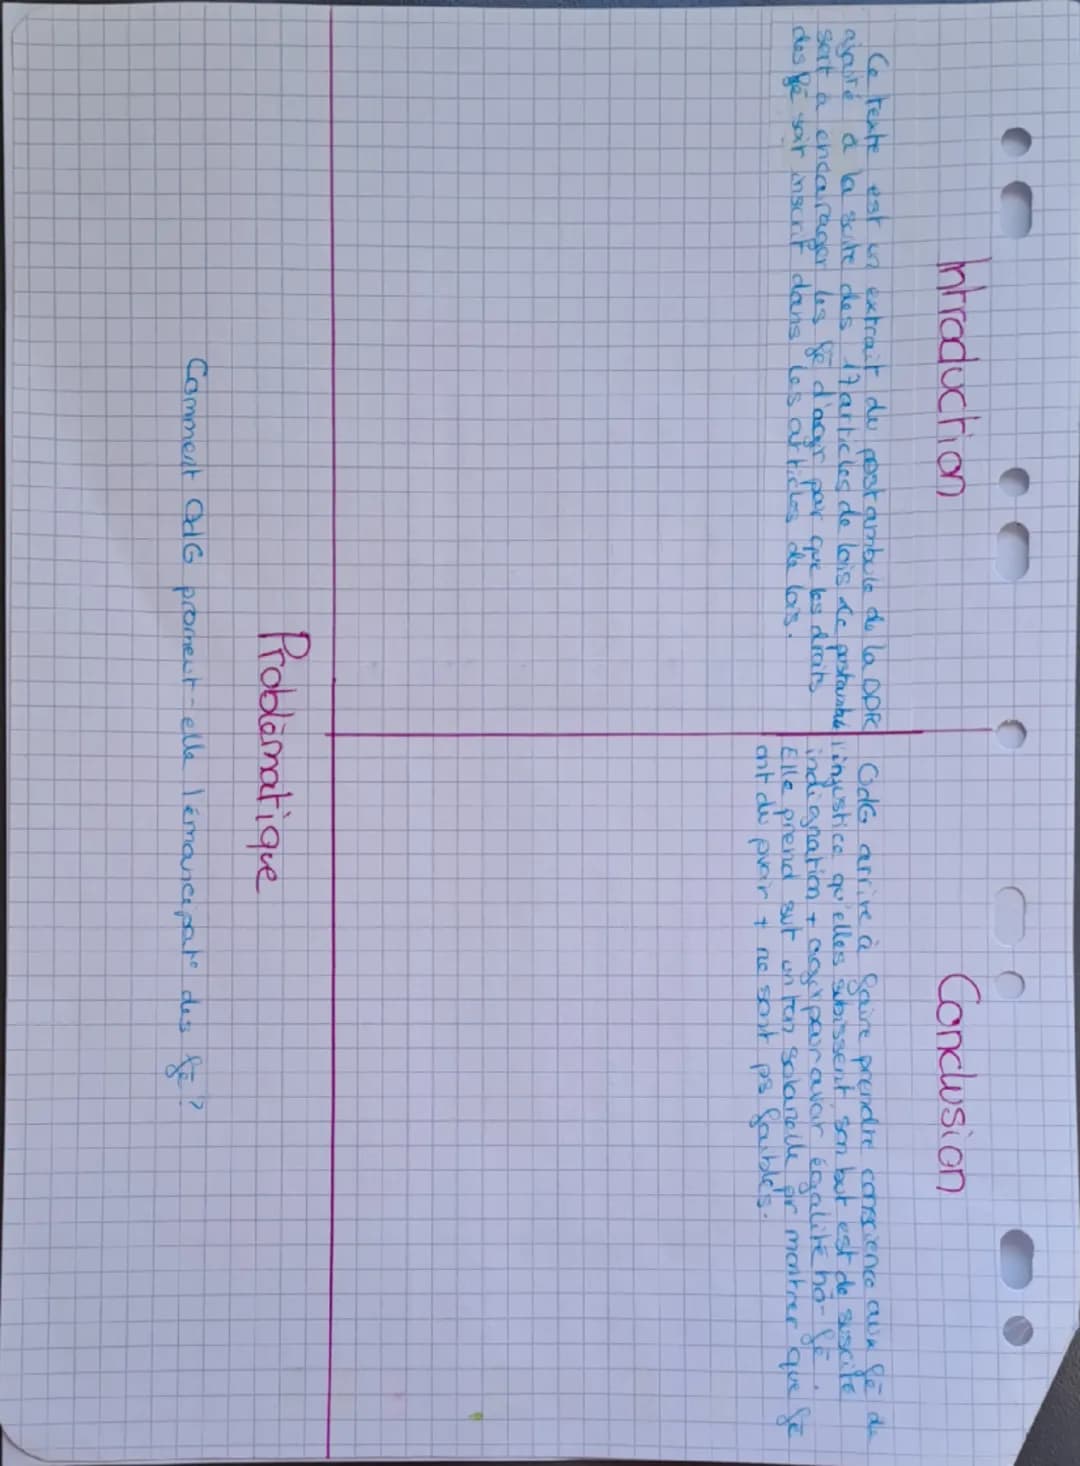 Introduction
Ce texte est un extrait du postambule de la DDFC
ajouté à la suite des 17 articles de lois. Le postambule
sert à encourager les fê d'agir par que les droits
des fê soit inscrit dans les articles de lois.
Conclusion
OdG arrive à faire prendre conscience aux fê de
l'injustice qu'elles subissent, son but est de suscité
indignation + agir pour avoir égalité ho-fê.
Elle prend sur un ton solanelle pr montrer que fê
ont du pvoir + ne sont ps faibles.
Problématique
Comment OdG promeut-elle l'émancipat° des fê?